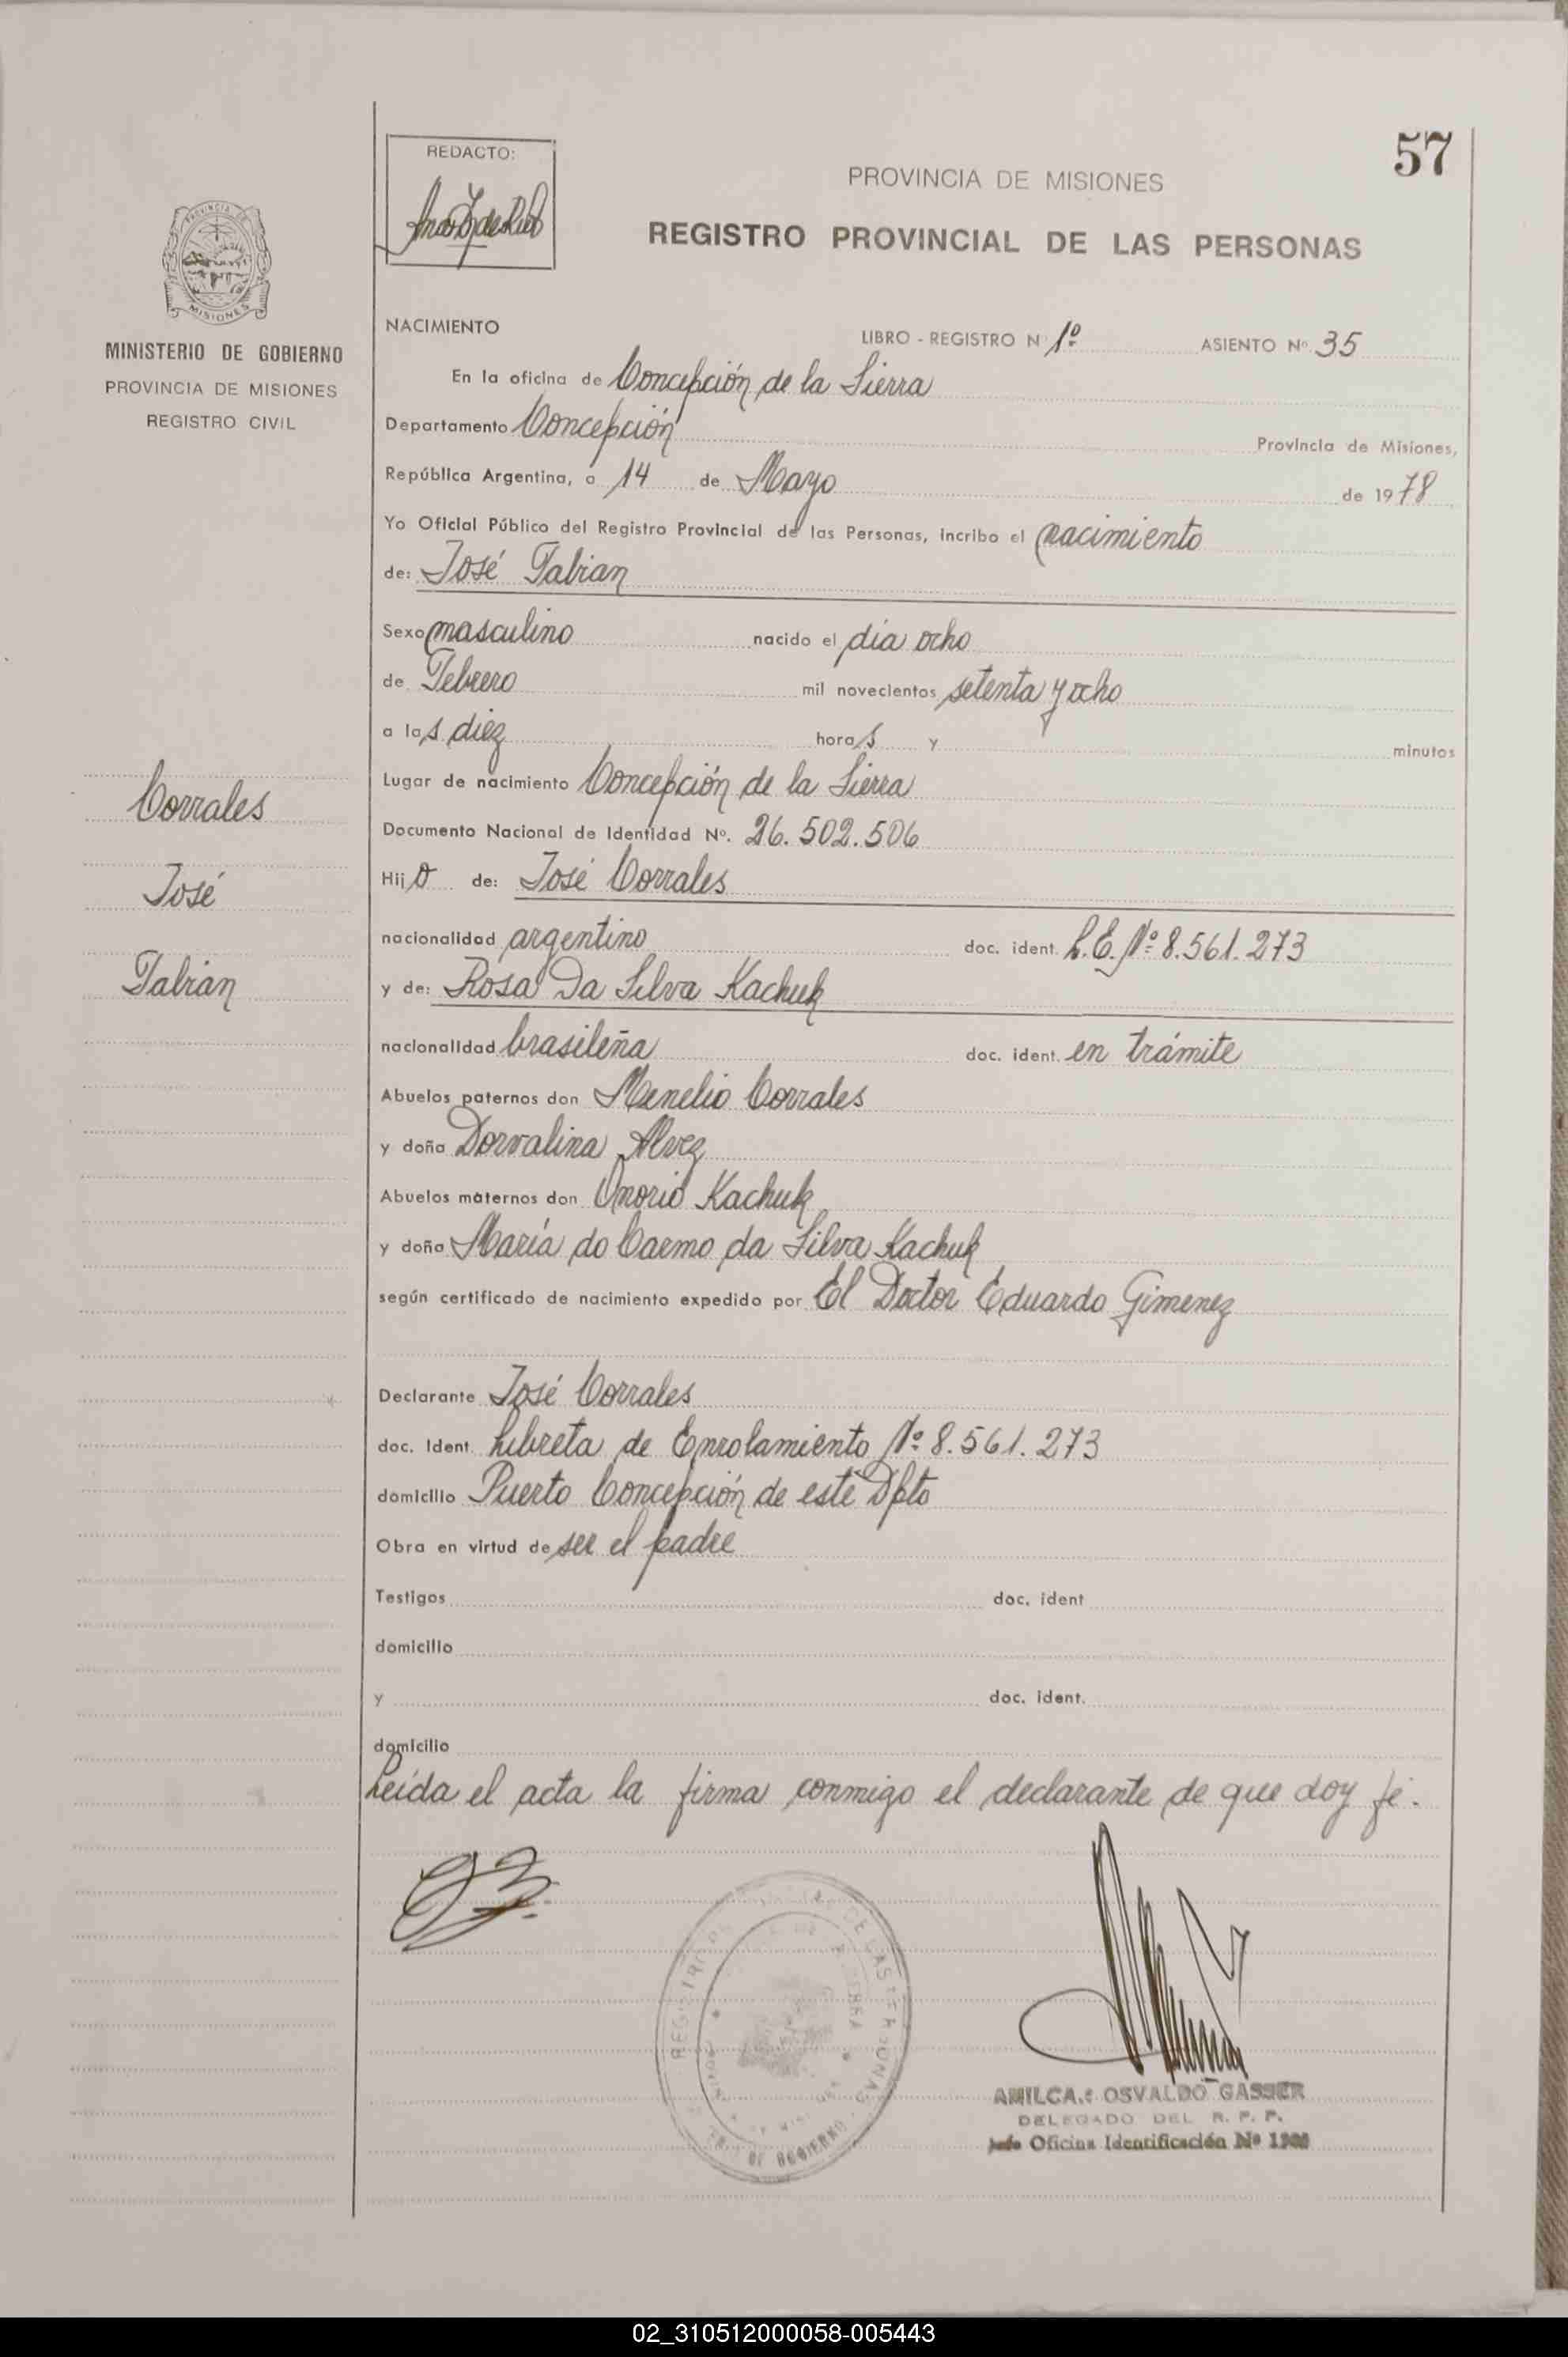 57
REDACTO:
PROVINCIA DE MISIONES
REGISTRO PROVINCIAL DE LAS PERSONAS
PROVINCIA DE
MISIONES
MINISTERIO DE GOBIERNO
PROVINCIA DE MISIONES
REGISTRO CIVIL
NACIMIENTO LIBRO - REGISTRO N 1º ASIENTO Nº 35
En la oficina de Concepción de la Sierra
Departamento Concepción Provincia de Misiones,
República Argentina, a 14 de Mayo de 1978
Yo Oficial Público del Registro Provincial de las Personas, incribo el nacimiento
de: José Fabian
Sexo masculino nacido el día ocho
de Febrero mil novecientos setenta y ocho
a las diez horas y minutos
Lugar de nacimiento Concepción de la Sierra
Corrales
Documento Nacional de Identidad Nº. 26.502.506
José
Hijo de: José Corrales
nacionalidad argentino doc. ident. L.E. Nº 8.561.273
Fabian
y de: Rosa Da Silva Kachuk
nacionalidad brasileña doc. ident. en trámite
Abuelos paternos don Menelio Corrales
y doña Dorvalina Alvez
Abuelos maternos don Onorio Kachuk
y doña María do Carmo da Silva Kachuk
según certificado de nacimiento expedido por El Doctor Eduardo Gimenez
Declarante José Corrales
doc. Ident. Libreta de Enrolamiento Nº 8.561.273
domicilio Puerto Concepción de este Dpto
Obra en virtud de ser el padre
Testigos doc. ident
domicilio
y doc. ident.
domicilio
Leída el acta la firma conmigo el declarante de que doy fé.
OSVALDO GASSER
DELEGADO DEL R. P. P.
Jefe Oficina Identificación Nº
02_310512000058-005443